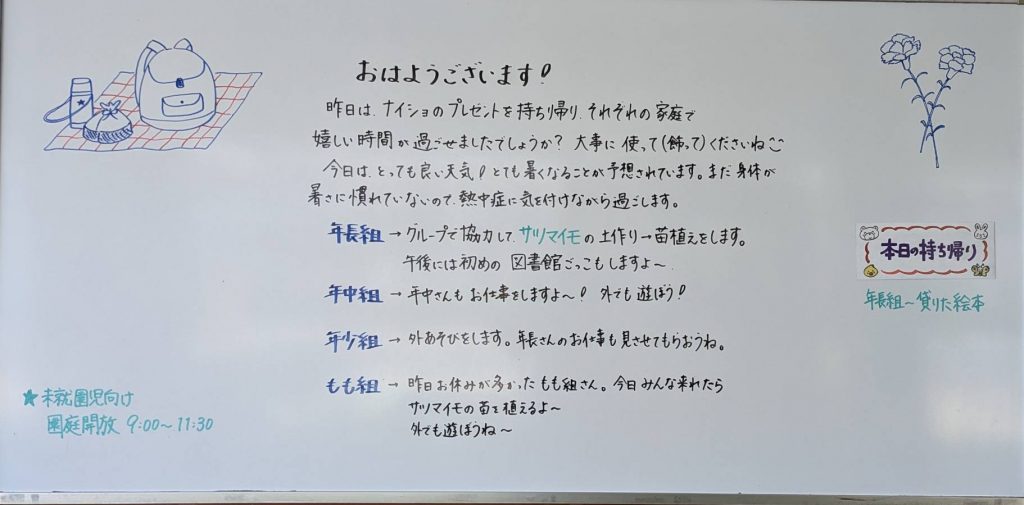 おはようございます!
昨日は、ナイショのプレゼントを持ち帰り、それぞれの家庭で
嬉しい時間が過ごせましたでしょうか? 大事に使って(飾って)くださいね
今日は、とっても良い天気!とても暑くなることが予想されています。まだ身体が
暑さに慣れていないので、熱中症に気を付けながら過ごします。
年長組 → グループで協力して、サツマイモの土作り→苗植えをします。
午後には初めの 図書館ごっこもしますよ~
年中組 → 年中さんもお仕事をしますよ~! 外でも遊ぼう!
年少組 → 外あそびをします。年長さんのお仕事も見させてもらおうね。
もも組 → 昨日お休みが多かったもも組さん。今日みんな来れたら
サツマイモの苗を植えるよ~
外でも遊ぼうね~
本日の持ち帰り
年長組~貸りた絵本
★未就園児向け
園庭開放 9:00~11:30